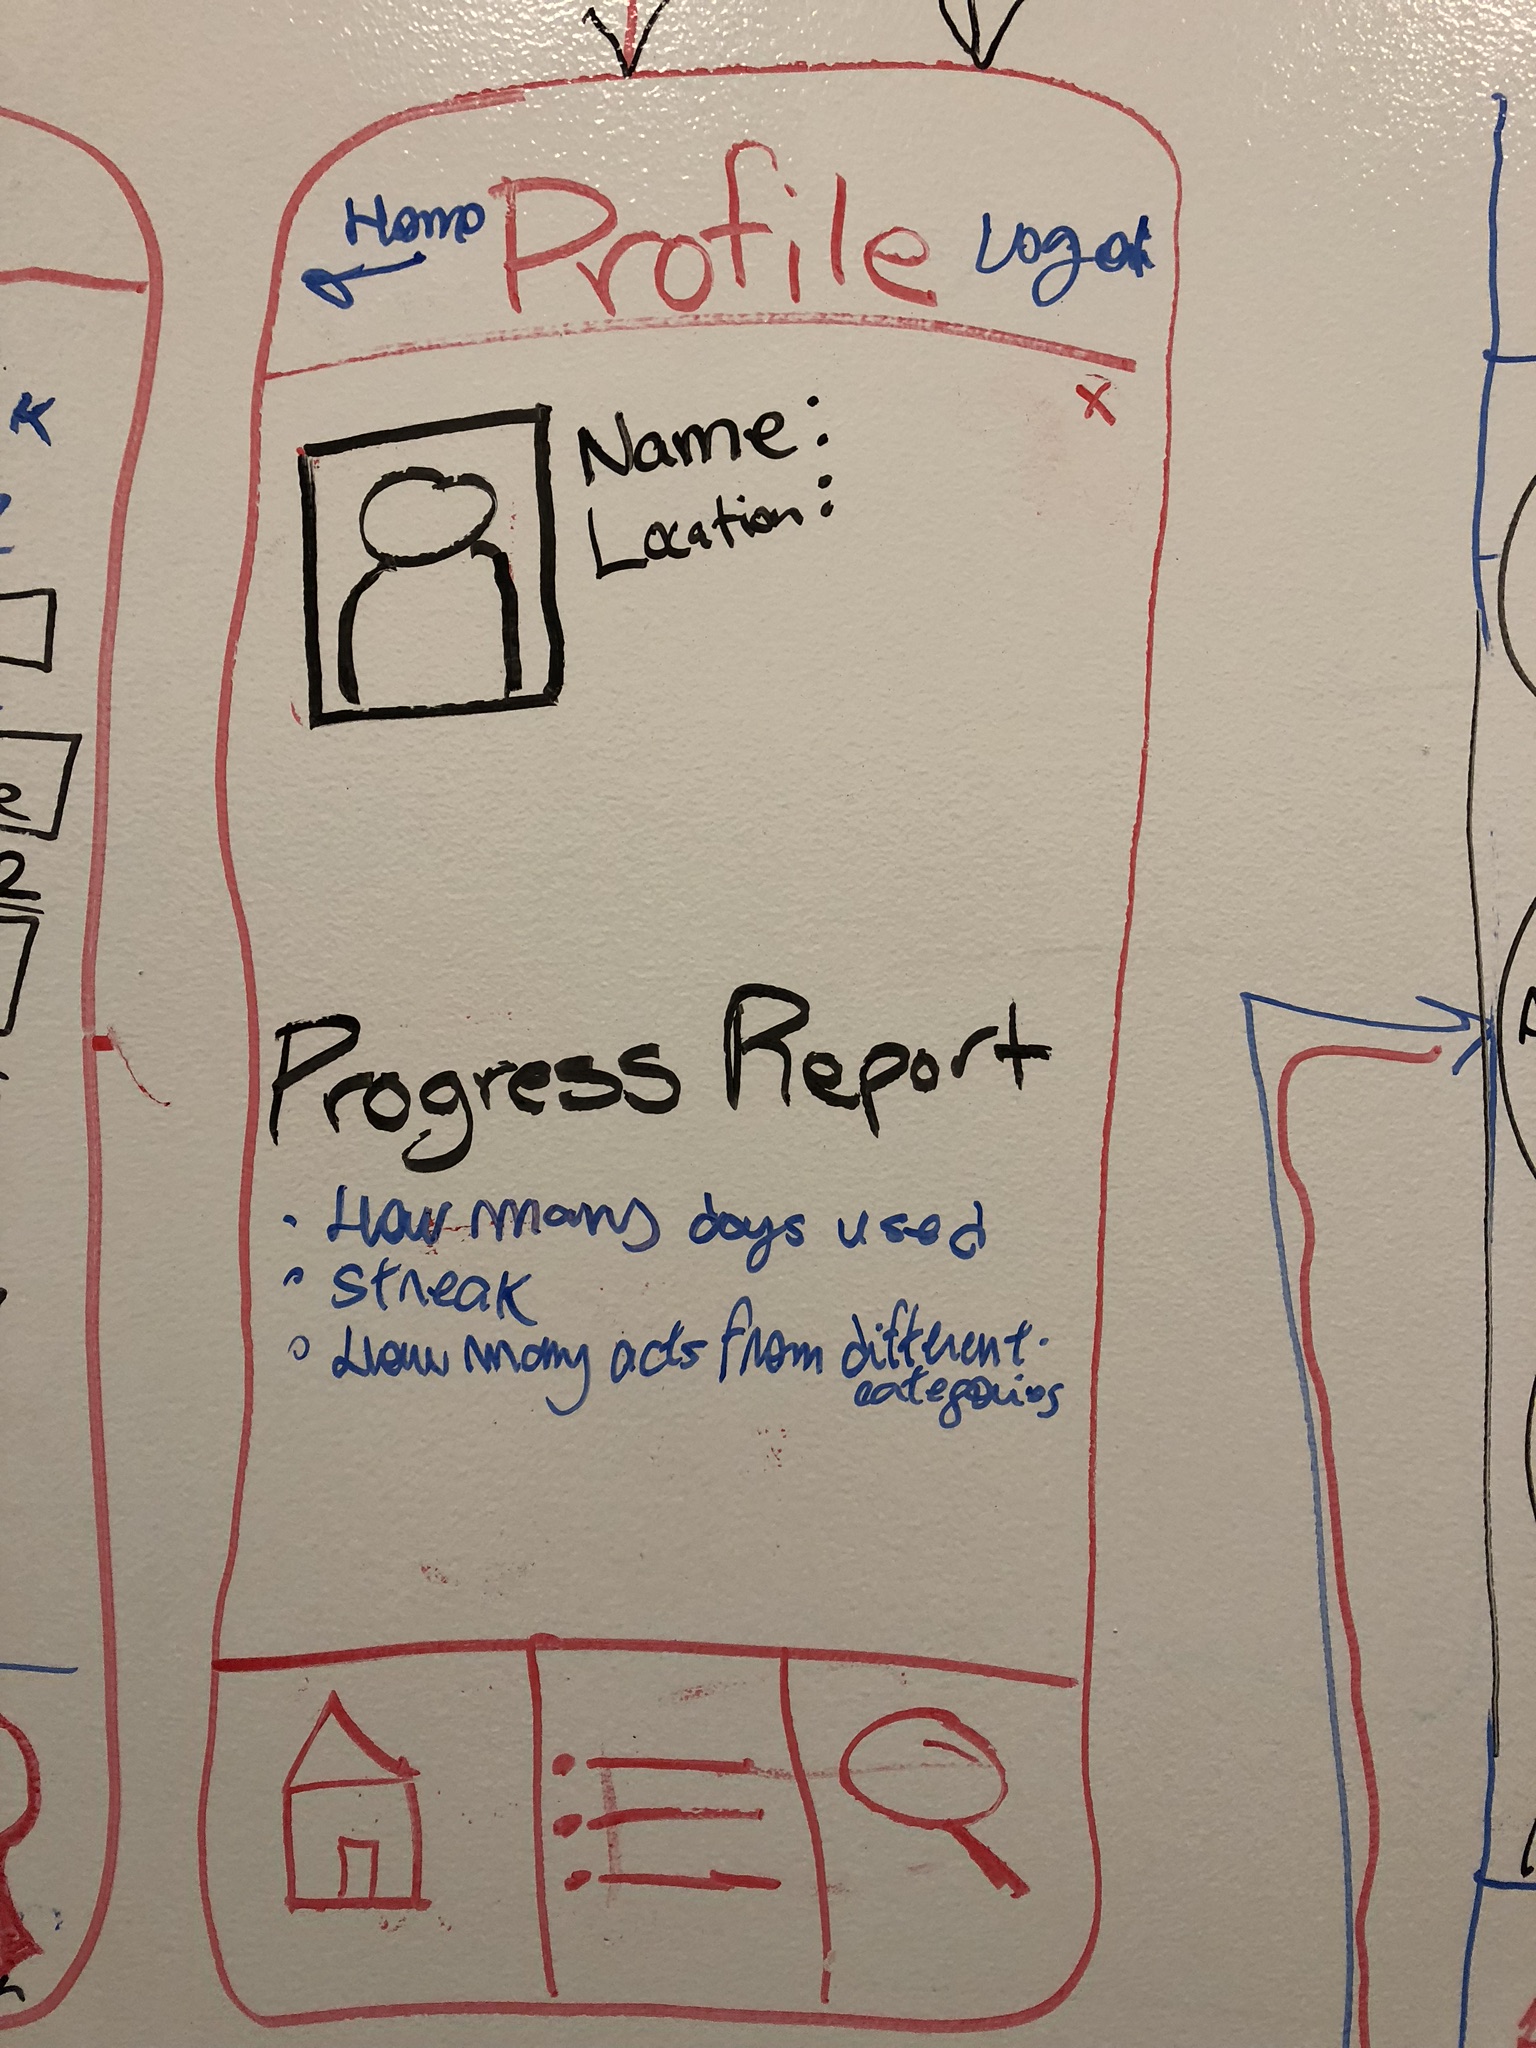 Home Profile Log out
x
Name:
Location:
Progress Report
• How many days used
• streak
• How many acts from different
categories